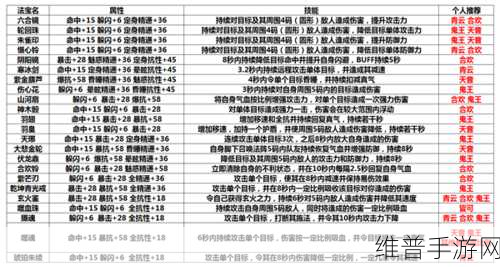 法宝名 属性 技能 个人推荐
六合镜 命中+15 躲闪+6 定身精通+36 持续对目标及其周围4码(圆形)敌人造成伤害,提升攻击力 青云 合欢
轮回珠 命中+15 躲闪+6 定身精通+36 持续对目标及其周围4码(圆形)敌人造成伤害,降低目标单体攻击力 鬼王 天音
朱雀印 命中+15 躲闪+6 定身精通+36 持续对目标及其周围4码(圆形)敌人造成伤害,提升防御力 鬼王 天音
慑心铃 命中+15 躲闪+6 定身精通+36 持续对目标及其周围4码(圆形)敌人造成伤害,降低目标单体防御力 青云 合欢
阴阳镜 暴击+28 魅惑精通+36 定身抗性+45 8秒内持续降低目标命中并提升自身闪避,BUFF持续5秒 合欢
寒冰剑 命中+15 定身精通+36 眩晕抗性+45 3.2秒内持续远程攻击单体目标,并造成其减速 青云
紫金葫芦 爆抗+58 昏睡精通+36 魅惑抗性+45 4秒内令单个目标昏睡,并持续扣减真气 天音
伤心花 躲闪+6 眩晕精通+36 昏睡抗性+45 3秒内持续对自身周围5码内的目标造成伤害 鬼王
山河扇 躲闪+6 暴击+28 爆抗+58 将自身气血按比例增强攻击力,对单个目标造成一次强力伤害 合欢 鬼王
神木骰 命中+15 躲闪+6 暴击+28 对单体目标造成强力一击,伤害会在较大范围内浮动 合欢
羽翅 命中+15 暴击+28 爆抗+58 增加移速和全抗并持续回复真气,持续若干秒 鬼王
羽皇 命中+15 躲闪+6 暴击+28 增加移速,加持一个护盾,并使周围5码敌人造成伤害降低,持续若干秒 天音
天琊 命中+15 暴击+28 定身精通+36 连续攻击单体目标3次,之后8秒内放大自身造成的伤害 鬼王
大悲金轮 命中+15 暴抗+58 昏睡精通+36 自身脚下召唤法阵5码内队友持续恢复气血并增强防御,持续8秒 天音
伏龙鼎 躲闪+6 爆抗+58 晕眩精通+36 降低目标及其周围5码内敌人的攻击力和防御力,持续8秒 鬼王
合欢铃 躲闪+6 暴击+28 魅惑精通+58 立即清除自身的不利状态,并在10秒内每隔2.5秒回复自身气血 合欢
碧芒刀 躲闪+6 暴击+28 全抗性+36 攻击单个目标,使其在8秒内减速并一定几率保持眩晕 合欢
乾坤青光戒 暴击+28 爆抗+58 全抗性+18 攻击单个目标,并在8秒内一定比例吸收该目标对你造成的伤害 鬼王
玄火鉴 暴击+28 爆抗+58 全抗性+18 令自己获得玄火之力,6秒内持续对5码内敌人造成伤害并降低其速度 青云 合欢 鬼王
噬血珠 命中+15 爆抗+58 全抗性+18 持续攻击自身周围5码敌人,同时将造成的伤害一定比例吸血 皆可
摄魂 命中+15 暴击+28 全抗性+18 攻击单个目标,打断其施法,并令其10秒内攻击力下降 青云 合欢 鬼王
噬魂 命中+15 暴抗+58 全抗性+18 6秒内持续攻击单个目标,伤害按一定比例吸血,并令目标受到伤害 天音 鬼王
琥珀朱绫 命中+15 躲闪+6 全抗性+18
维普手游网